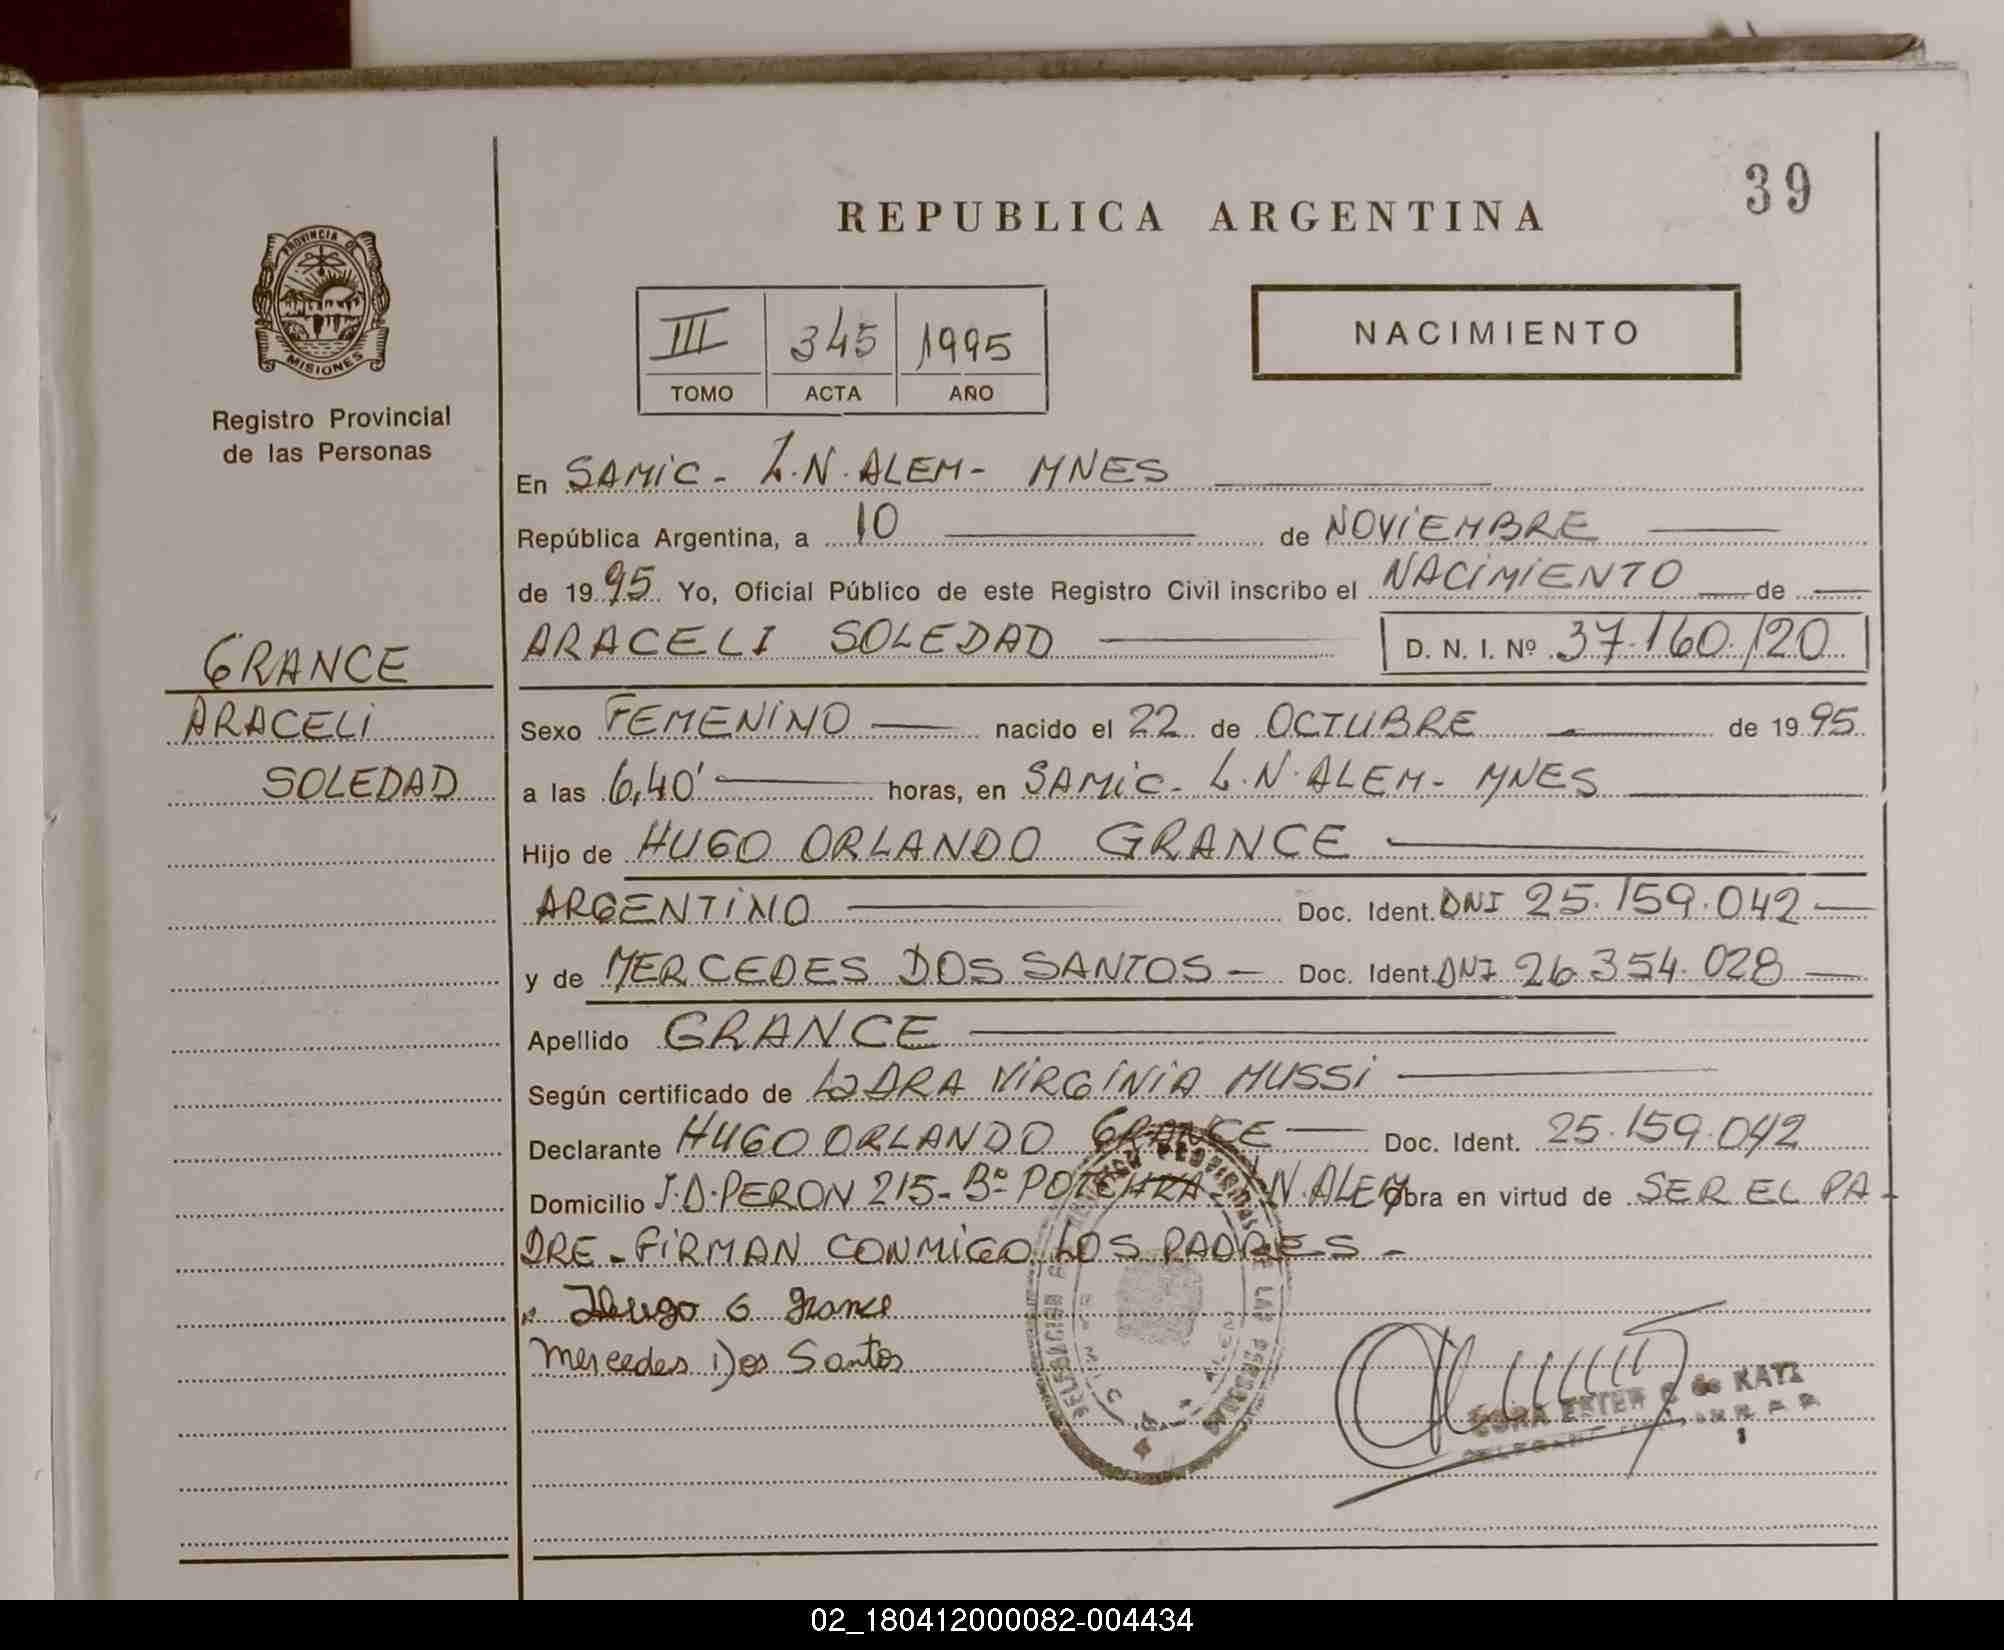 39
REPUBLICA ARGENTINA
PROVINCIA DE
MISIONES
Registro Provincial
de las Personas
III 345 1995
TOMO ACTA AÑO
NACIMIENTO
En SAMIC - L.N. ALEM - MNES
República Argentina, a 10 de NOVIEMBRE
de 1995 Yo, Oficial Público de este Registro Civil inscribo el NACIMIENTO de
ARACELI SOLEDAD D. N. I. Nº 37.160.120
GRANCE
ARACELI
SOLEDAD
Sexo FEMENINO nacido el 22 de OCTUBRE de 1995
a las 6,40' horas, en SAMIC - L.N. ALEM - MNES
Hijo de HUGO ORLANDO GRANCE
ARGENTINO Doc. Ident. DNI 25.159.042
y de MERCEDES DOS SANTOS - Doc. Ident. DNI 26.354.028
Apellido GRANCE
Según certificado de LA DRA VIRGINIA MUSSI
Declarante HUGO ORLANDO GRANCE Doc. Ident. 25.159.042
Domicilio J.D. PERON 215 - Bº L.N. ALEM Obra en virtud de SER EL PA
DRE - FIRMAN CONMIGO LOS PADRES -
Hugo O Grance
Mercedes Dos Santos
de KATZ
02_180412000082-004434